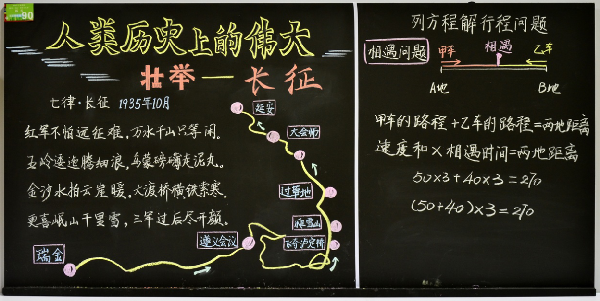 90
人类历史上的伟大
壮举—长征
七律·长征 1935年10月
红军不怕远征难,万水千山只等闲。
五岭逶迤腾细浪,乌蒙磅礴走泥丸。
金沙水拍云崖暖,大渡桥横铁索寒。
更喜岷山千里雪,三军过后尽开颜。
延安
大会师
过草地
爬雪山
飞夺泸定桥
遵义会议
瑞金
列方程解行程问题
相遇问题
甲车
相遇
乙车
A地
B地
甲车的路程+乙车的路程=两地距离
速度和×相遇时间=两地距离
50×3+40×3=270
(50+40)×3=270